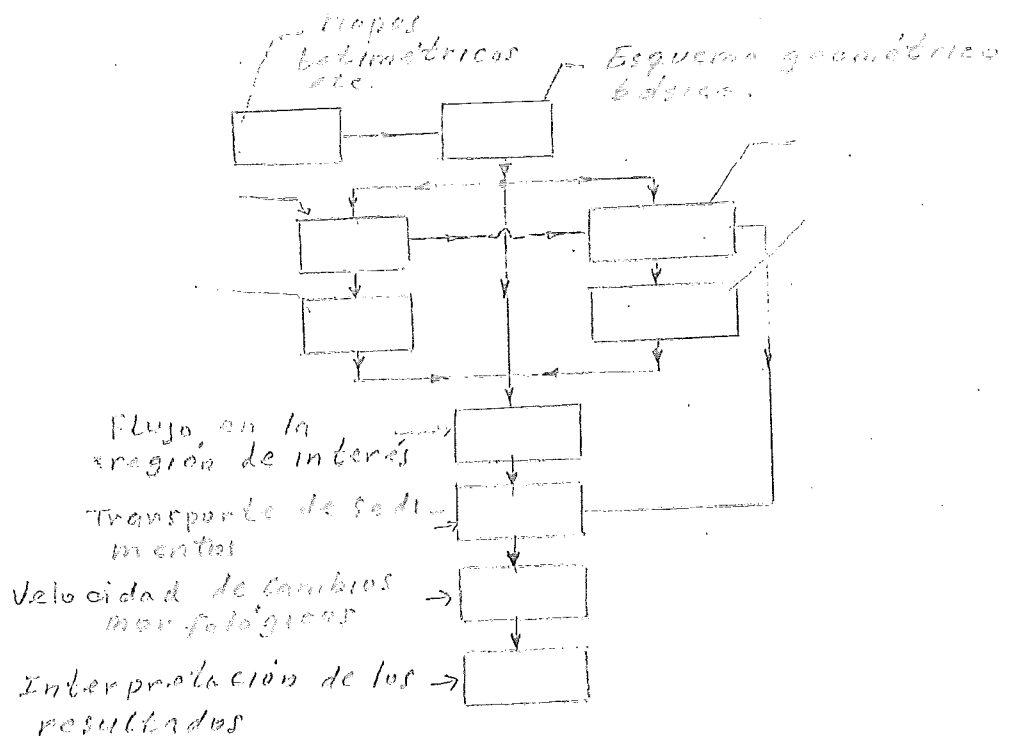 Mapas
batimétricos
etc.
Esquema geométrico
básico.
Flujo en la
región de interés
Transporte de sedi
mentos
Velocidad de cambios
morfológicos
Interpretación de los
resultados